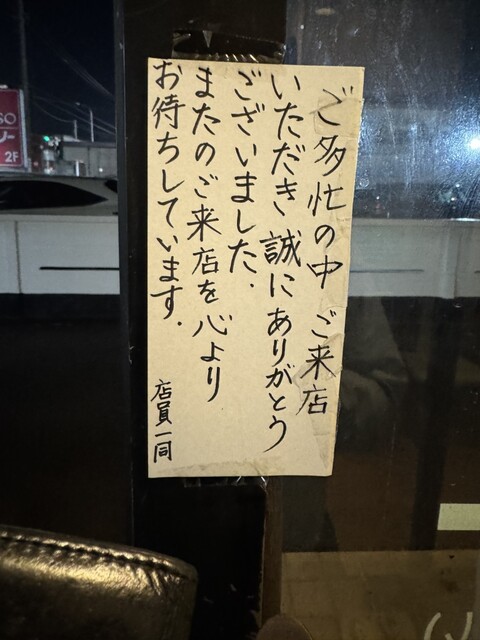 ご多忙の中 ご来店
いただき 誠にありがとう
ございました.
またのご来店を心より
お待ちしています.
店員一同
SO
リー
2F